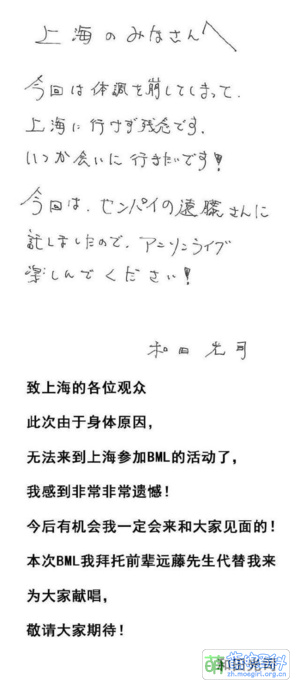 上海のみなさんへ
今回は体調を崩してしまって、
上海に行けず残念です。
いつか会いに行きたいです!
今回は、センパイの遠藤さんに
託しましたので、アニソンライブ
楽しんでください!
和田光司
致上海的各位观众
此次由于身体原因，
无法来到上海参加BML的活动了，
我感到非常非常遗憾！
今后有机会我一定会来和大家见面的！
本次BML我拜托前辈远藤先生代替我来
为大家献唱，
敬请大家期待！
和田光司
zh.moegirl.org